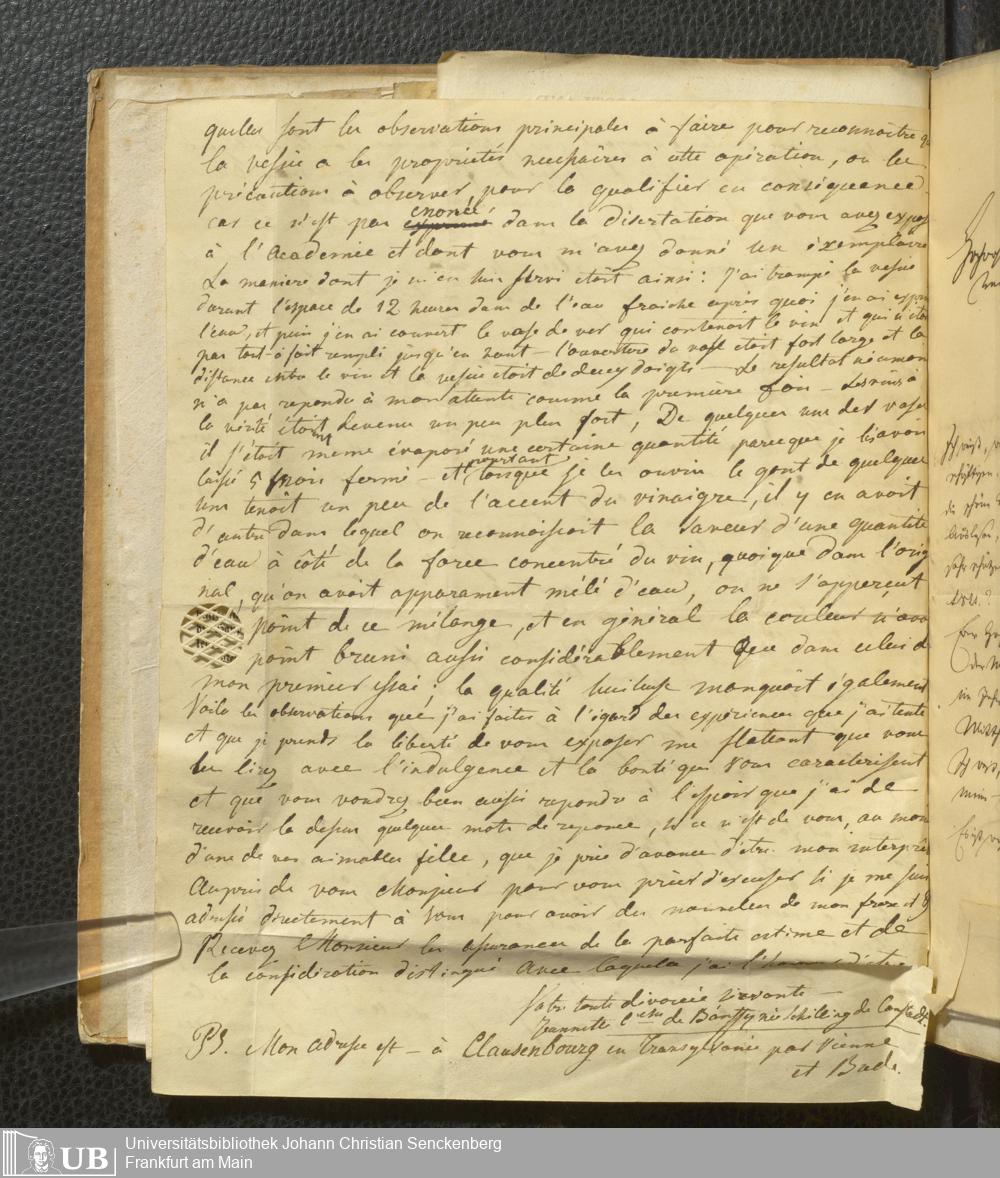 quelles sont les observations principales à faire pour reconnoitre
la vessie a les proprietés necessaires à cette opération, ou les
précautions à observer pour la qualifier en consequence
car ce n'est pas enoncé dans la disertation que vous avez exposé
à l'Academie et dont vous m'avez donné un éxemplaire
La maniere dont je m'en suis servi étoit ainsi: J'ai trempé la vessie
durant l'espace de 12 heures dans de l'eau fraiche après quoi j'en ai exprimé
l'eau, et puis j'en ai couvert le vase de ver qui contenoit le vin et qui n'étoit
pas tout-à fait rempli jusqu'en haut - l'ouverture du vase étoit fort large et la
distance entre le vin et la vessie étoit de deux doigts - Le resultat néanmoins
n'a pas repondu à mon attente comme la première fois - Les vins à
la vérité étoient devenu un peu plus fort, De quelques uns des vases
il s'étoit meme évaporé une certaine quantité parceque je les avois
laissé 5 mois fermé - et pourtant lorsque je les ouvris le gout de quelques
uns tenoit un peu de l'accent du vinaigre, il y en avoit
d'autres dans lequel on reconnoissoit la saveur d'une quantité
d'eau à côté de la force concentré du vin, quoique dans l'orig
nal, qu'on avoit apparament mélé d'eau, on ne s'apperçeut
point de ce mélange, et en général la couleur n'avoi
point bruni aussi considérablement que dans celui d
mon premier essai; la qualité huileuse manquoit également
Voila les observations que j'ai faites à l'égard des expériences que j'ai tenté
et que je prends la liberté de vous exposer me flattant que vous
les lirez avec l'indulgence et la bonté qui vous caracterisent
et que vous voudrez bien aussi repondre à l'espoir que j'ai de
recevoir la dessus quelques mots de reponce, si ce n'est de vous, au moin
d'une de vos aimables filles, que je prie d'avance d'etre mon interprè
Auprès de vous Monsieur pour vous prier d'excuser si je me suis
adressé directement à vous pour avoir des nouvelles de mon frere et
Recevez Monsieur les assurances de la parfaite estime et de
la considération distingué avec laquele j'ai l'honneur d'etre
Votre toute divouée servante
Jeannette C de Bánffy née Schilling de Canstadt
PS. Mon adresse est - à Clausenbourg en Transylvanie par Vienne
et Bude.
Universitätsbibliothek Johann Christian Senckenberg
Frankfurt am Main
UB